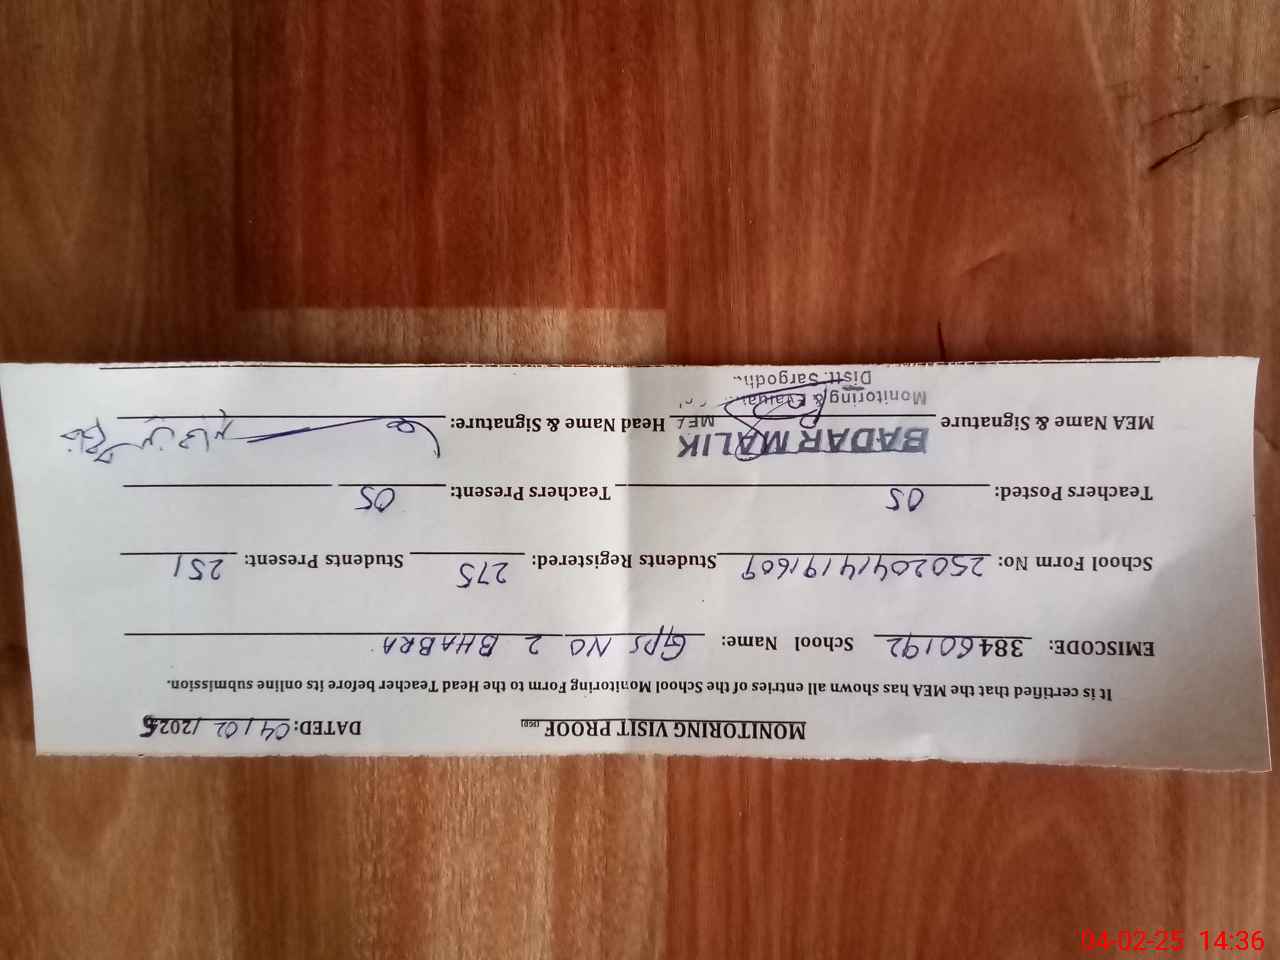 MONITORING VISIT PROOF DATED: 04/02/2025
It is certified that the MEA has shown all entries of the School Monitoring Form to the Head Teacher before its online submission.
EMISCODE: 38460192 School Name: GPS NO 2 BHABRA
School Form No: 25020414191609 Students Registered: 275 Students Present: 251
Teachers Posted: 05 Teachers Present: 05
BADAR MALIK
MEA Name & Signature MEA Head Name & Signature:
Monitoring & Evaluation
Distt. Sargodha
04-02-25 14:36